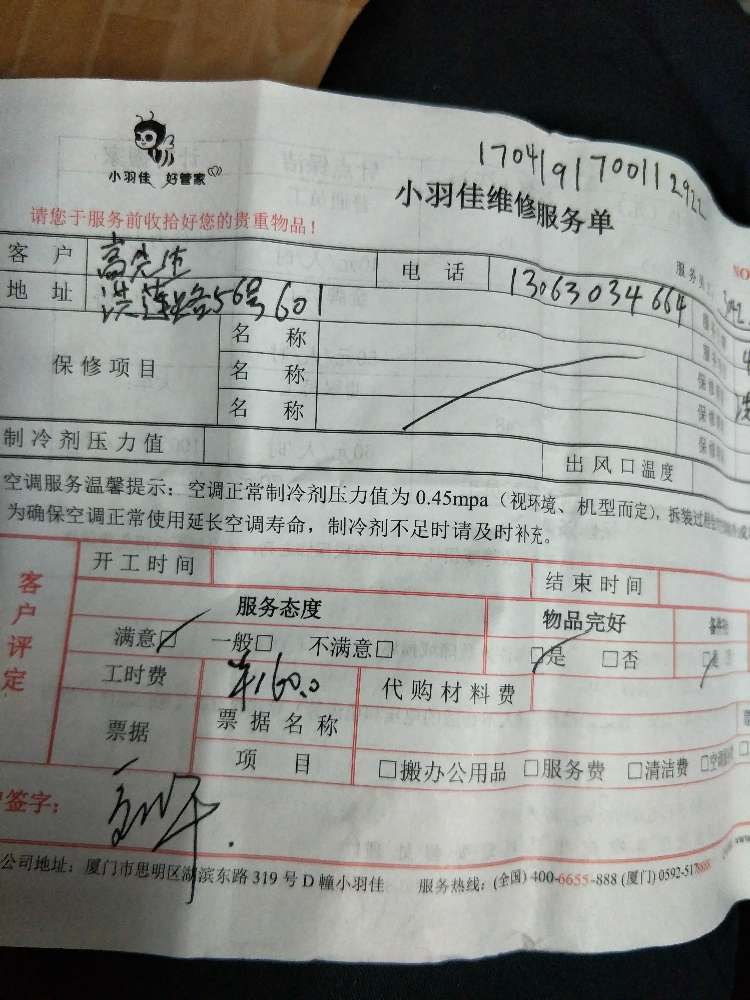 17041917001129​22
小羽佳 好管家
小羽佳维修服务单
请您于服务前收拾好您的贵重物品！
NO
客户 高先生 电话 13063034664
地址 洪莲北路56号601
保修项目 名称
名称
名称
制冷剂压力值 出风口温度
空调服务温馨提示：空调正常制冷剂压力值为 0.45mpa（视环境、机型而定），拆装过程
为确保空调正常使用延长空调寿命，制冷剂不足时请及时补充。
客户评定
开工时间 结束时间
服务态度 物品完好
满意☑ 一般□ 不满意□ ☑是 □否
工时费 ¥160.0 代购材料费
票据 票据名称
项目 □搬办公用品 □服务费 □清洁费
签字：
公司地址：厦门市思明区湖滨东路 319 号 D 幢小羽佳 服务热线：(全国) 400-6655-888 (厦门) 0592-517